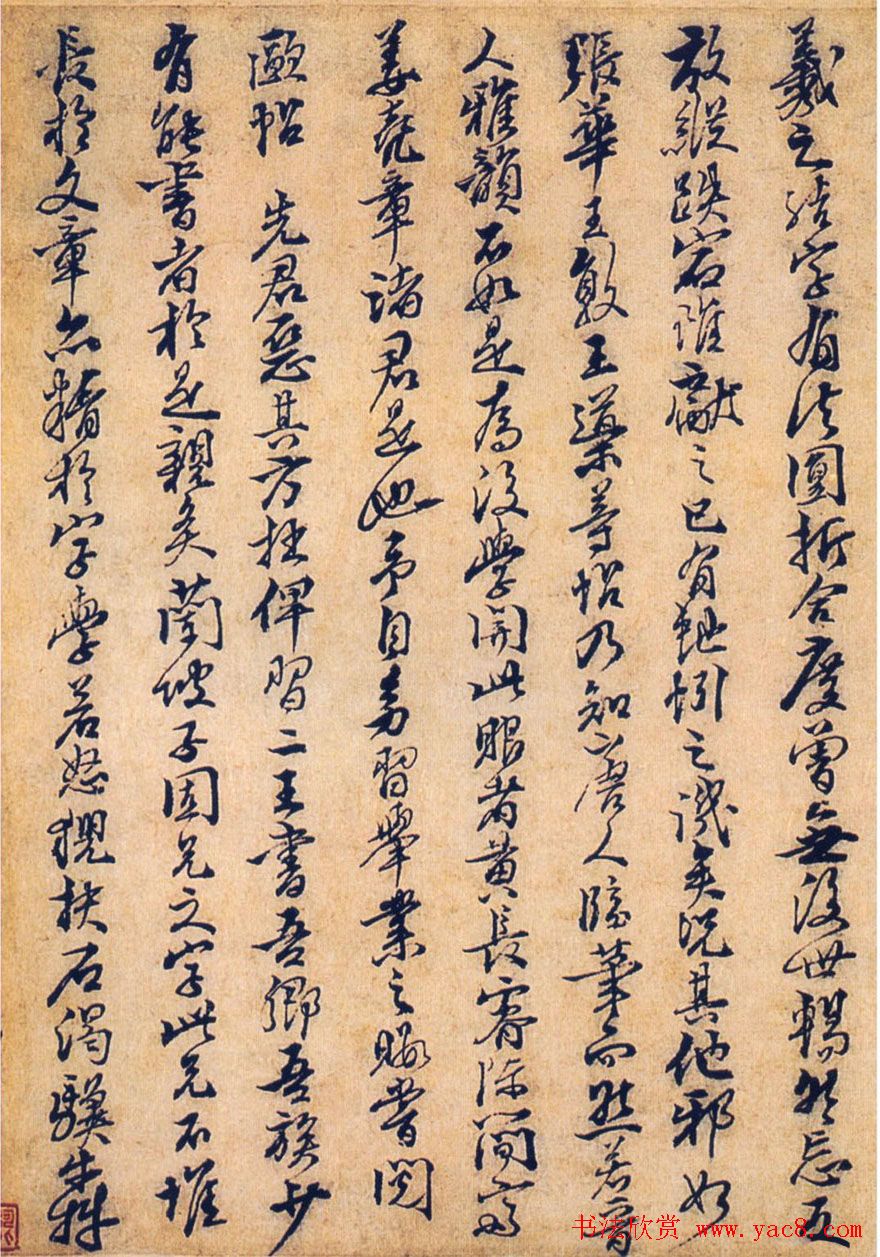 羲之結字有法圓折合度曾無後世暢然忘反
放縱跌宕雖獻之已有虵蚓之譏矣況其他邪如
張華王敦王導等帖乃知唐人臨摹而然若晉
人雅韻不如是為後學開此眼者黃長睿陳簡齋
姜堯章諸君是也予自幼習舉業之暇嘗閱
歐帖 先君惡其方拙俾習二王書吾鄉吾族少
有能書者於是親炙蘭坡子固兄之字此兄不惟
長於文章亦精於字學若怒猊抉石渴驥犇
书法欣赏 www.yac8.com